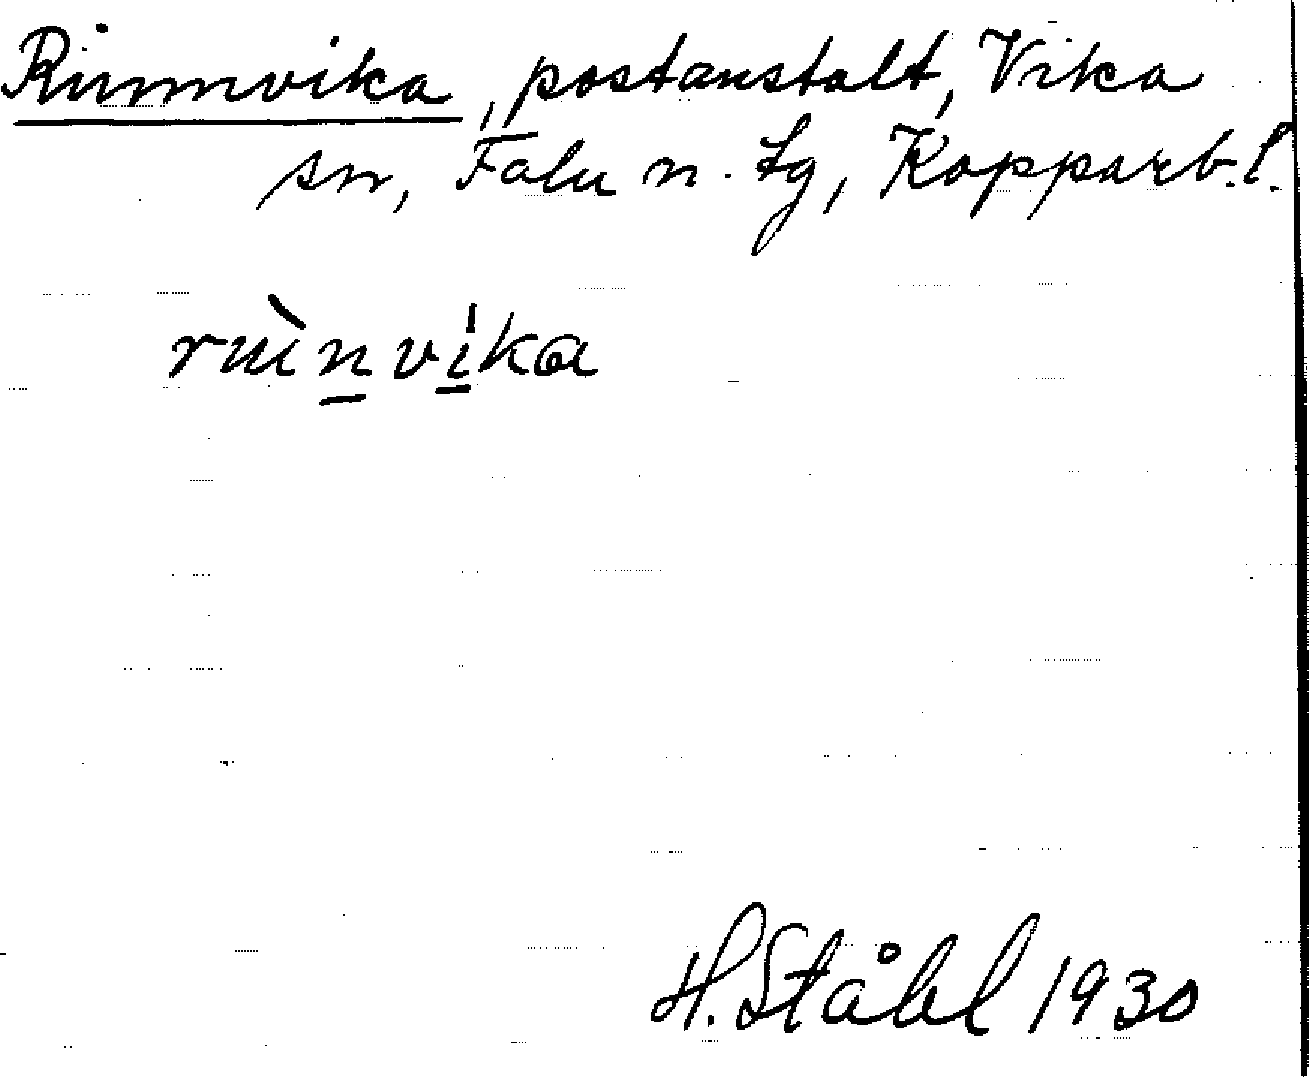 Rinnvika, postanstalt, Vika
sn, Falu n. tg, Kopparb. l.
rinvika
H. Ståhl 1930